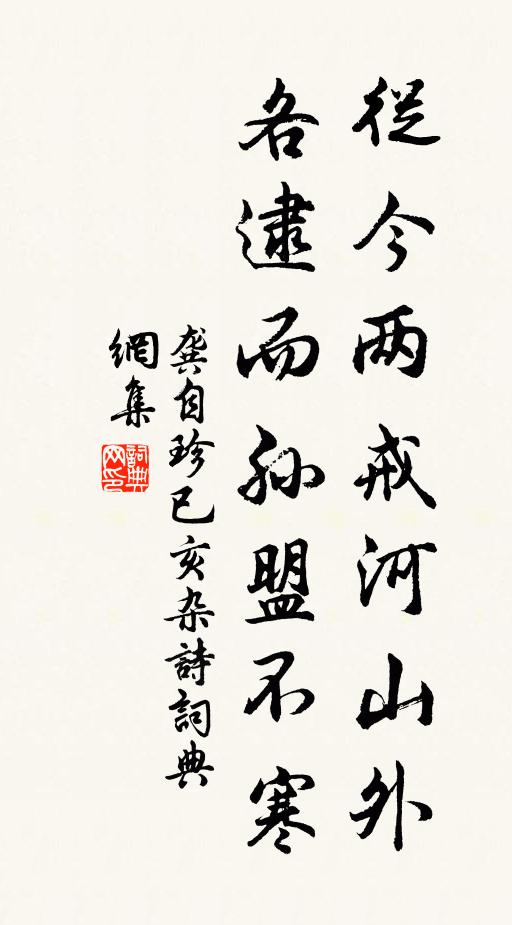 從今两戒河山外
各逮而孙盟不寒
龔自珍已亥杂詩詞典
網集
詞典
网印